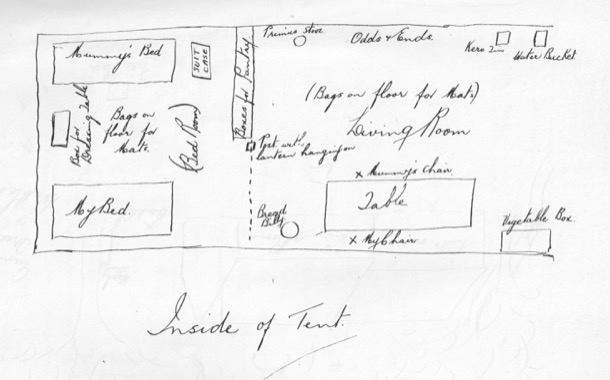 Mummy's Bed
SUIT
CASE
Boxes for Pantry.
Primus stove
Odds & Ends.
Kero Tin
Water Bucket
Box for
Dressing Table
Bags on
floor for
Mats.
(Bed Room)
(Bags on floor for Mats)
Living Room
Post with
lantern hanging on
x Mummy's Chair
Table
x My Chair
My Bed.
Bread
Billy
Vegetable Box.
Inside of Tent.